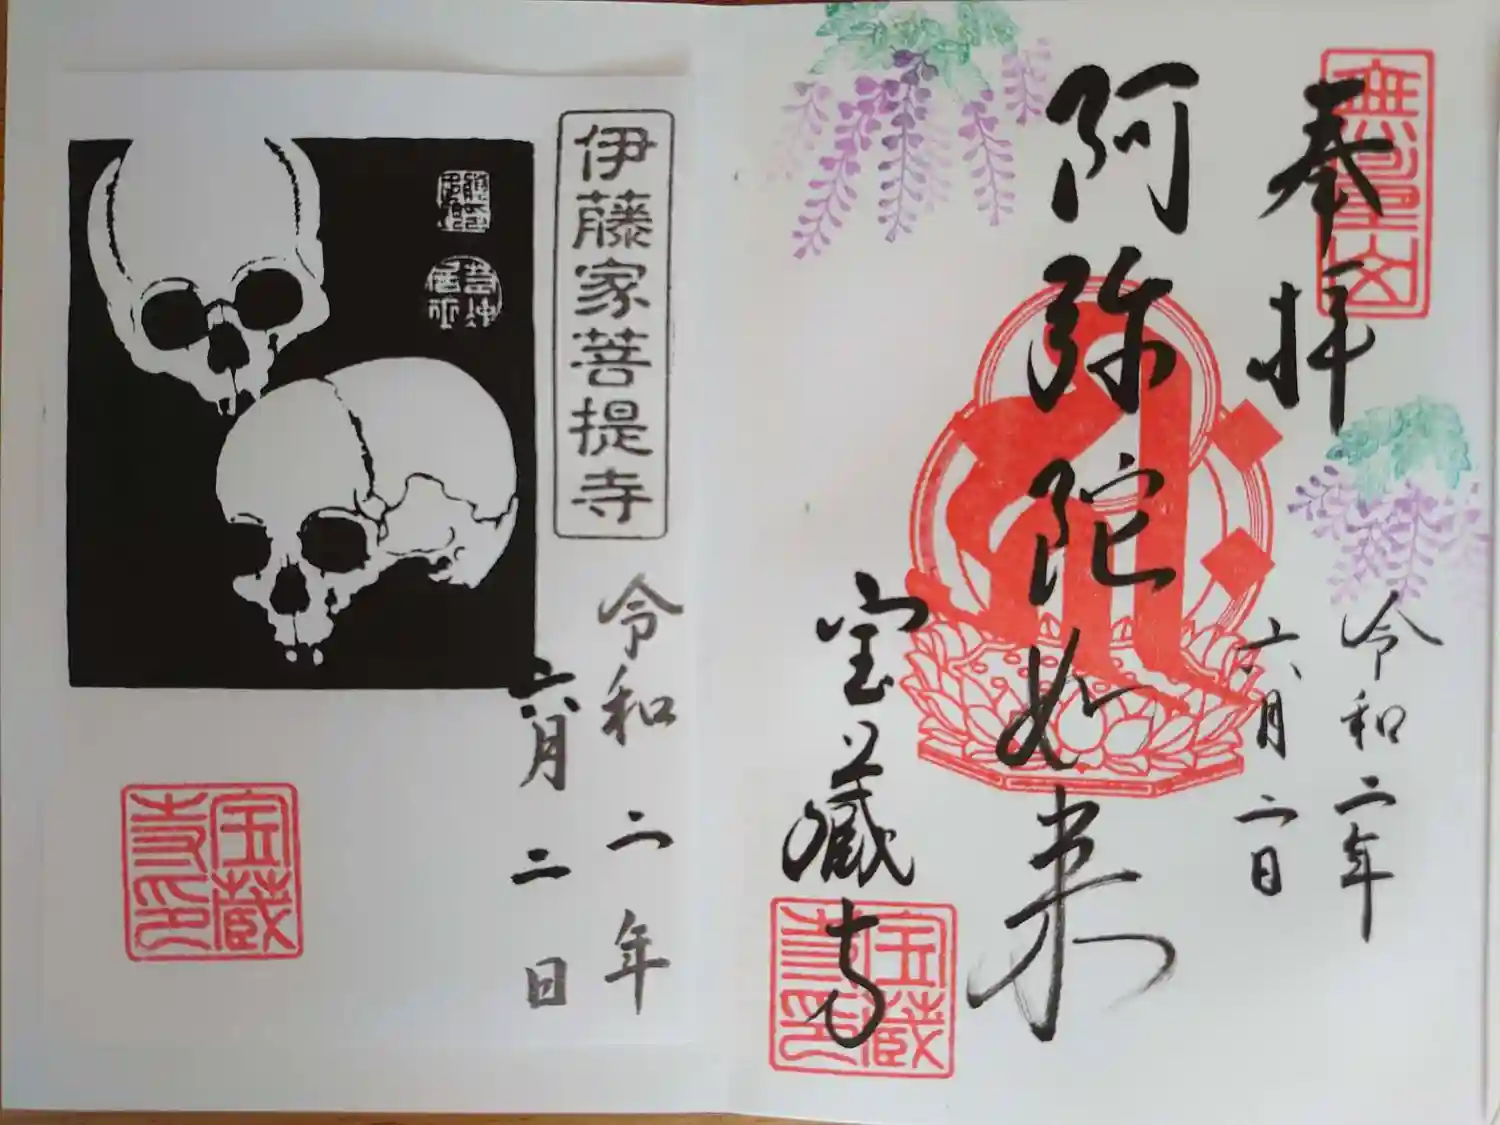 無量山
奉拝
令和二年
六月二日
阿弥陀如来
宝蔵寺
宝蔵
寺印
伊藤家菩提寺
若冲
居士
令和二年
六月二日
宝蔵
寺印